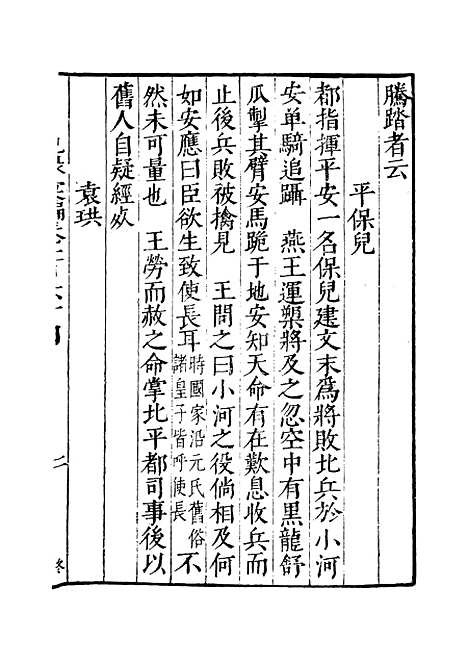 騰踏者云
平保兒
都指揮平安一名保兒建文末為將敗北兵於小河
安单騎追躡　燕王運槊將及之忽空中有黑龍舒
爪掣其臂安馬跪于地安知天命有在歎息收兵而
止後兵敗被擒見　王問之曰小河之役倘相及何
如安應曰臣欲生致使長耳時國家沿元氏舊俗諸皇子皆呼使長不
然未可量也　王勞而赦之命掌北平都司事後以
舊人自疑經死
袁珙
二